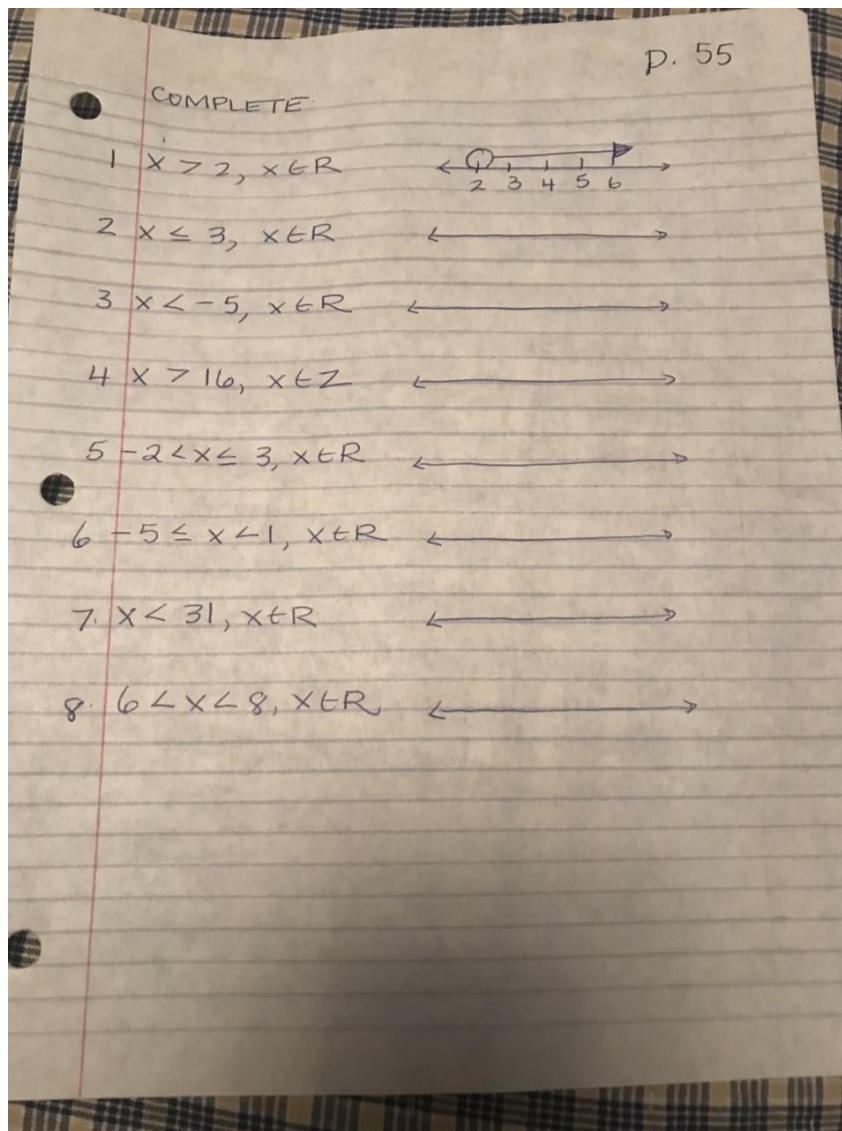 p. 55
COMPLETE
1 x > 2, x ∈ R
2 3 4 5 6
2 x ≤ 3, x ∈ R
3 x < -5, x ∈ R
4 x > 16, x ∈ Z
5 -2 < x ≤ 3, x ∈ R
6 -5 ≤ x < 1, x ∈ R
7. x < 31, x ∈ R
8. 6 < x < 8, x ∈ R